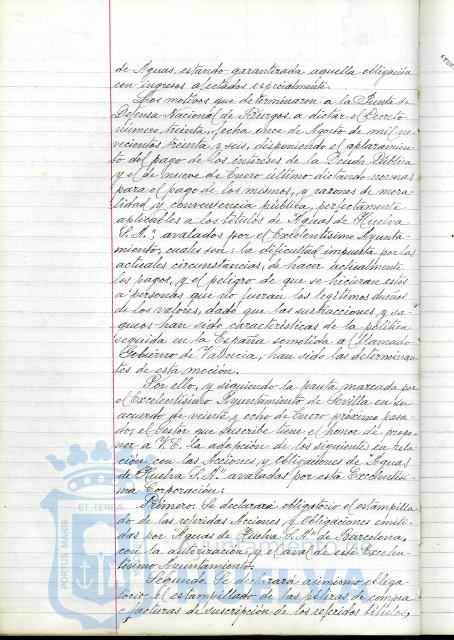 de Aguas, estando garantizada aquella obligación
con ingresos afectados especialmente.
Los motivos que determinaron a la Junta de
Defensa Nacional de Burgos, a dictar el Decreto
número treinta, fecha once de Agosto de mil no-
vecientos treinta y seis, disponiendo el aplazamien-
to del pago de los intereses de la Deuda Pública
y el de nueve de Enero último dictando normas
para el pago de los mismos, y razones de mora-
lidad y conveniencia pública, perfectamente
aplicables a los títulos de "Aguas de Huelva
S.A." avalados por el Excelentísimo Ayunta-
miento, cuales son: la dificultad impuesta por las
actuales circunstancias, de hacer actualmente
los pagos, y el peligro de que se hicieran estos
a personas que no fueran los legítimos dueños
de los valores, dado que las sustracciones y sa-
queos han sido características de la política
seguida en la España sometida al llamado
Gobierno de Valencia, han sido las determinan-
tes de esta moción.
Por ello, y siguiendo la pauta marcada por
el Excelentísimo Ayuntamiento de Sevilla en su
acuerdo de veinte y ocho de Enero próximo pasa-
do, el Gestor que suscribe tiene el honor de propo-
ner a V.E. la adopción de los siguientes en rela-
ción con las Acciones y Obligaciones de "Aguas
de Huelva S.A." avaladas por esta Excelentísi-
ma Corporación:
Primero. Se declarará obligatorio el estampilla-
do de las referidas Acciones y Obligaciones emiti-
das por "Aguas de Huelva S.A." de Barcelona,
con la autorización y el aval de este Excelen-
tísimo Ayuntamiento.
Segundo. Se declarará asimismo obliga-
torio el estampillado de las pólizas de compra
o facturas de suscripción de los referidos títulos,
ET TERRA
PORTUS MARIS